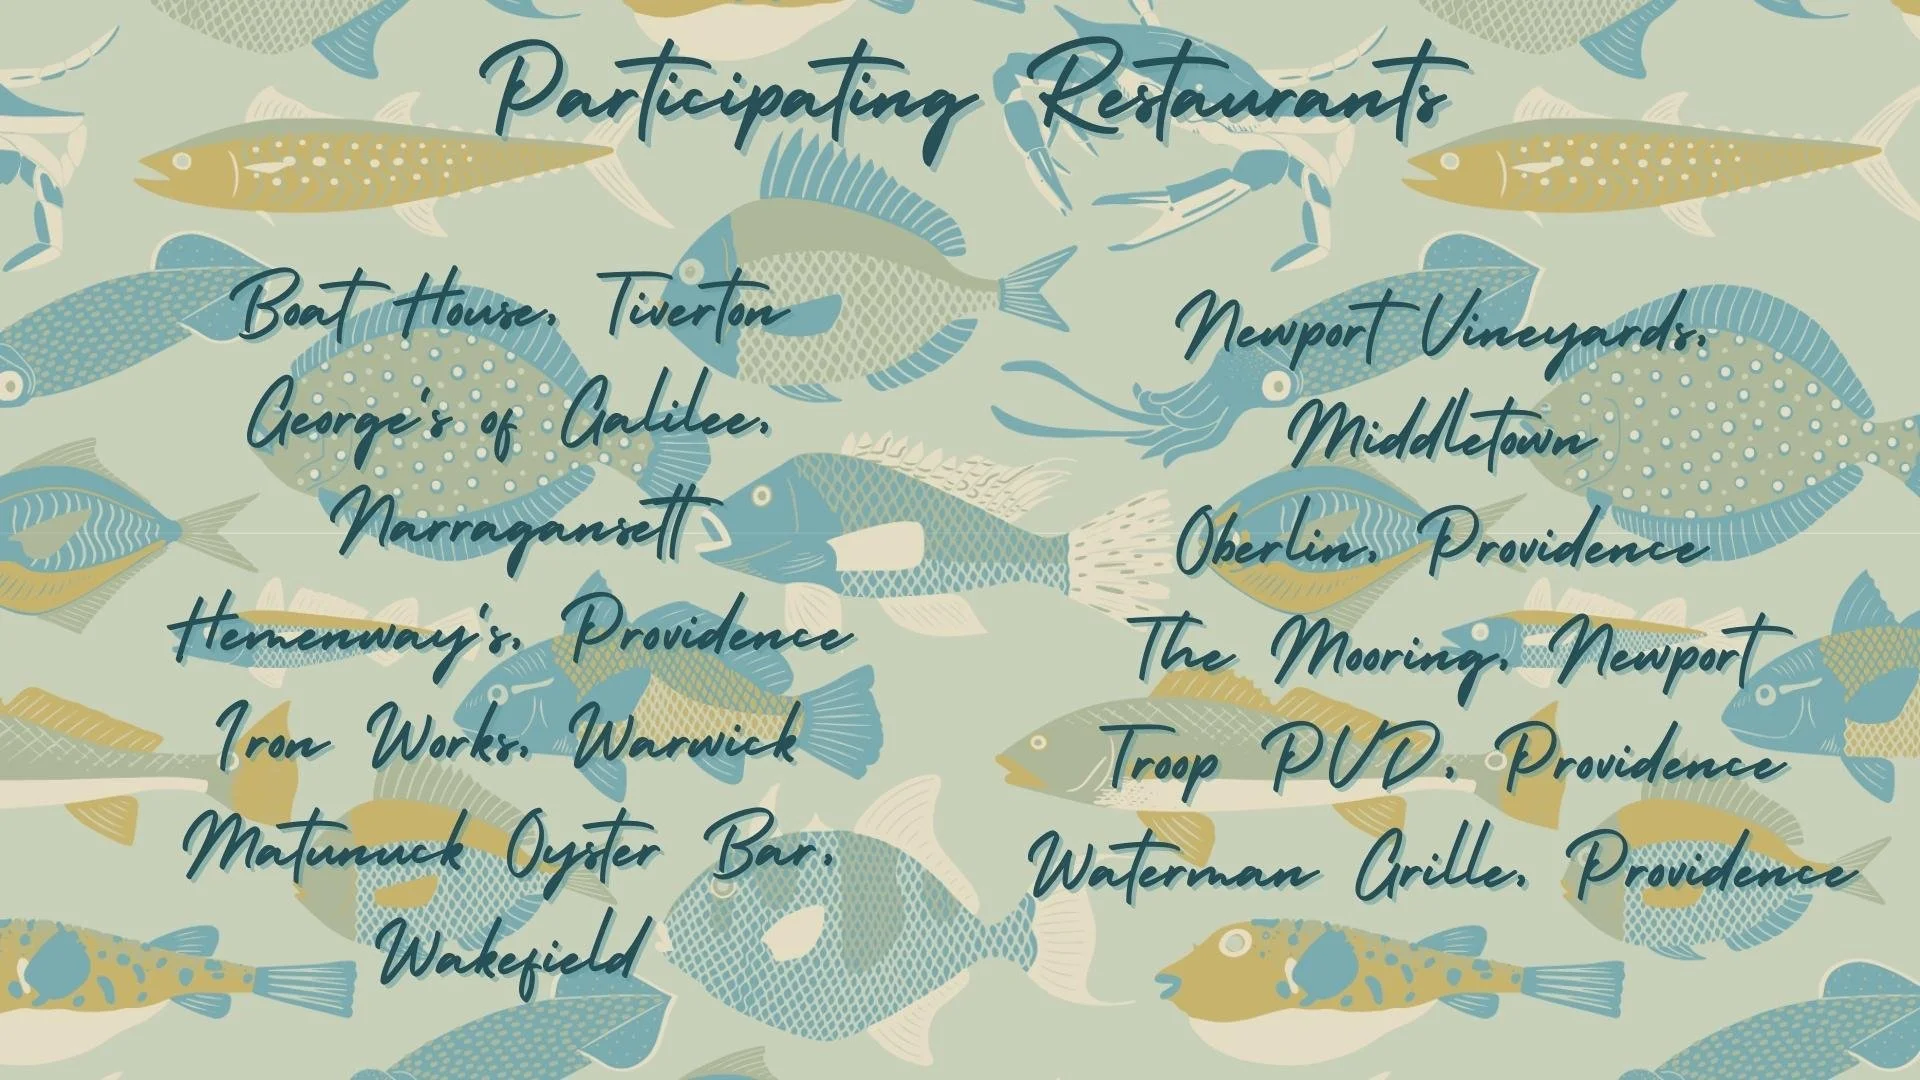 Participating Restaurants
Boat House, Tiverton
George's of Galilee,
Narragansett
Hemenway's, Providence
Iron Works, Warwick
Matunuck Oyster Bar,
Wakefield
Newport Vineyards,
Middletown
Oberlin, Providence
The Mooring, Newport
Troop PVD, Providence
Waterman Grille, Providence